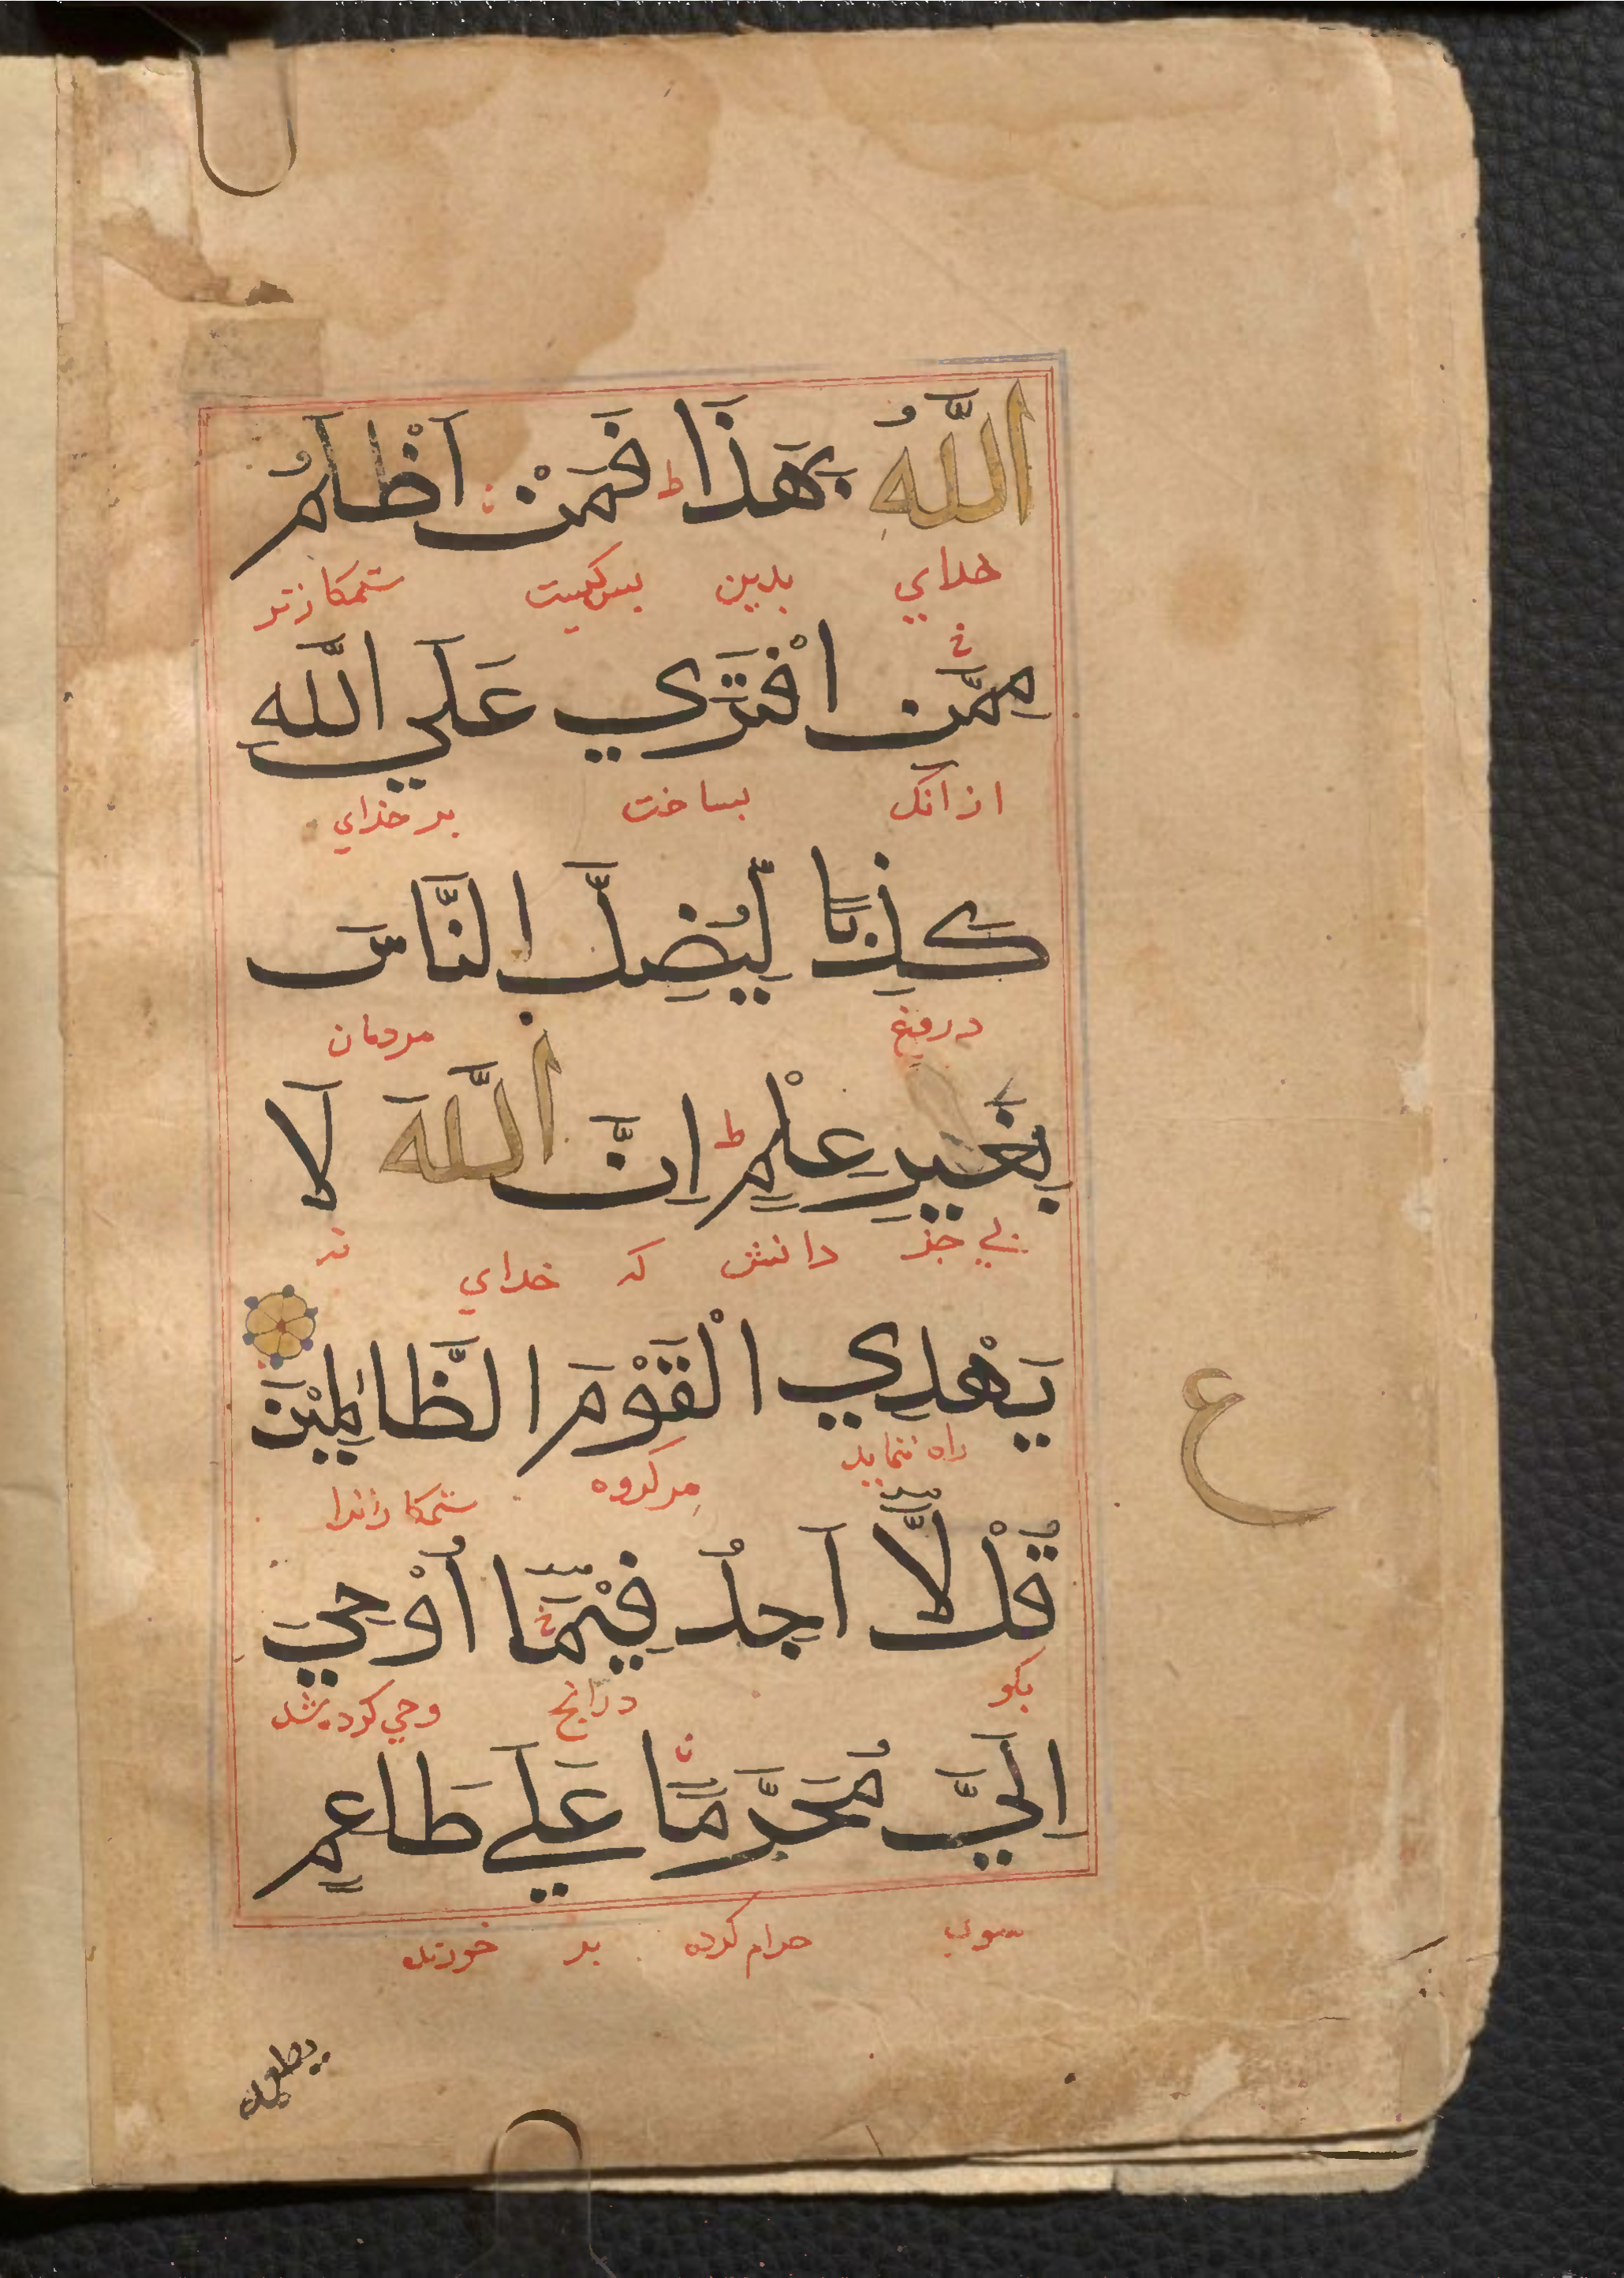 اللَّهُ بِهَذَا ط فَمَنْ اَظْلَمُ
خدای بدین بس کیست ستمکارتر
مِمَّنِ افْتَرَي عَلَي اللَّهِ
از آنک بساخت بر خدای
كَذِبًا لِيُضِلَّ النَّاسَ
دروغ مردمان
بِغَيْرِ عِلْمٍ ط اِنَّ اللَّهَ لَا
بی جز دانش که خدای نه
يَهْدِي الْقَوْمَ الظَّالِمِيْنَ
راه ننماید مر کروه ستمکارانرا
ع
قُلْ لَّا اَجِدُ فِيْمَّا اُوْحِيَ
بکو درانج وحی کرده شد
اِلَيَّ مُحَرَّمًا عَلَي طَاعِمٍ
سوی حرام کرده بر خورنده
يطعمه